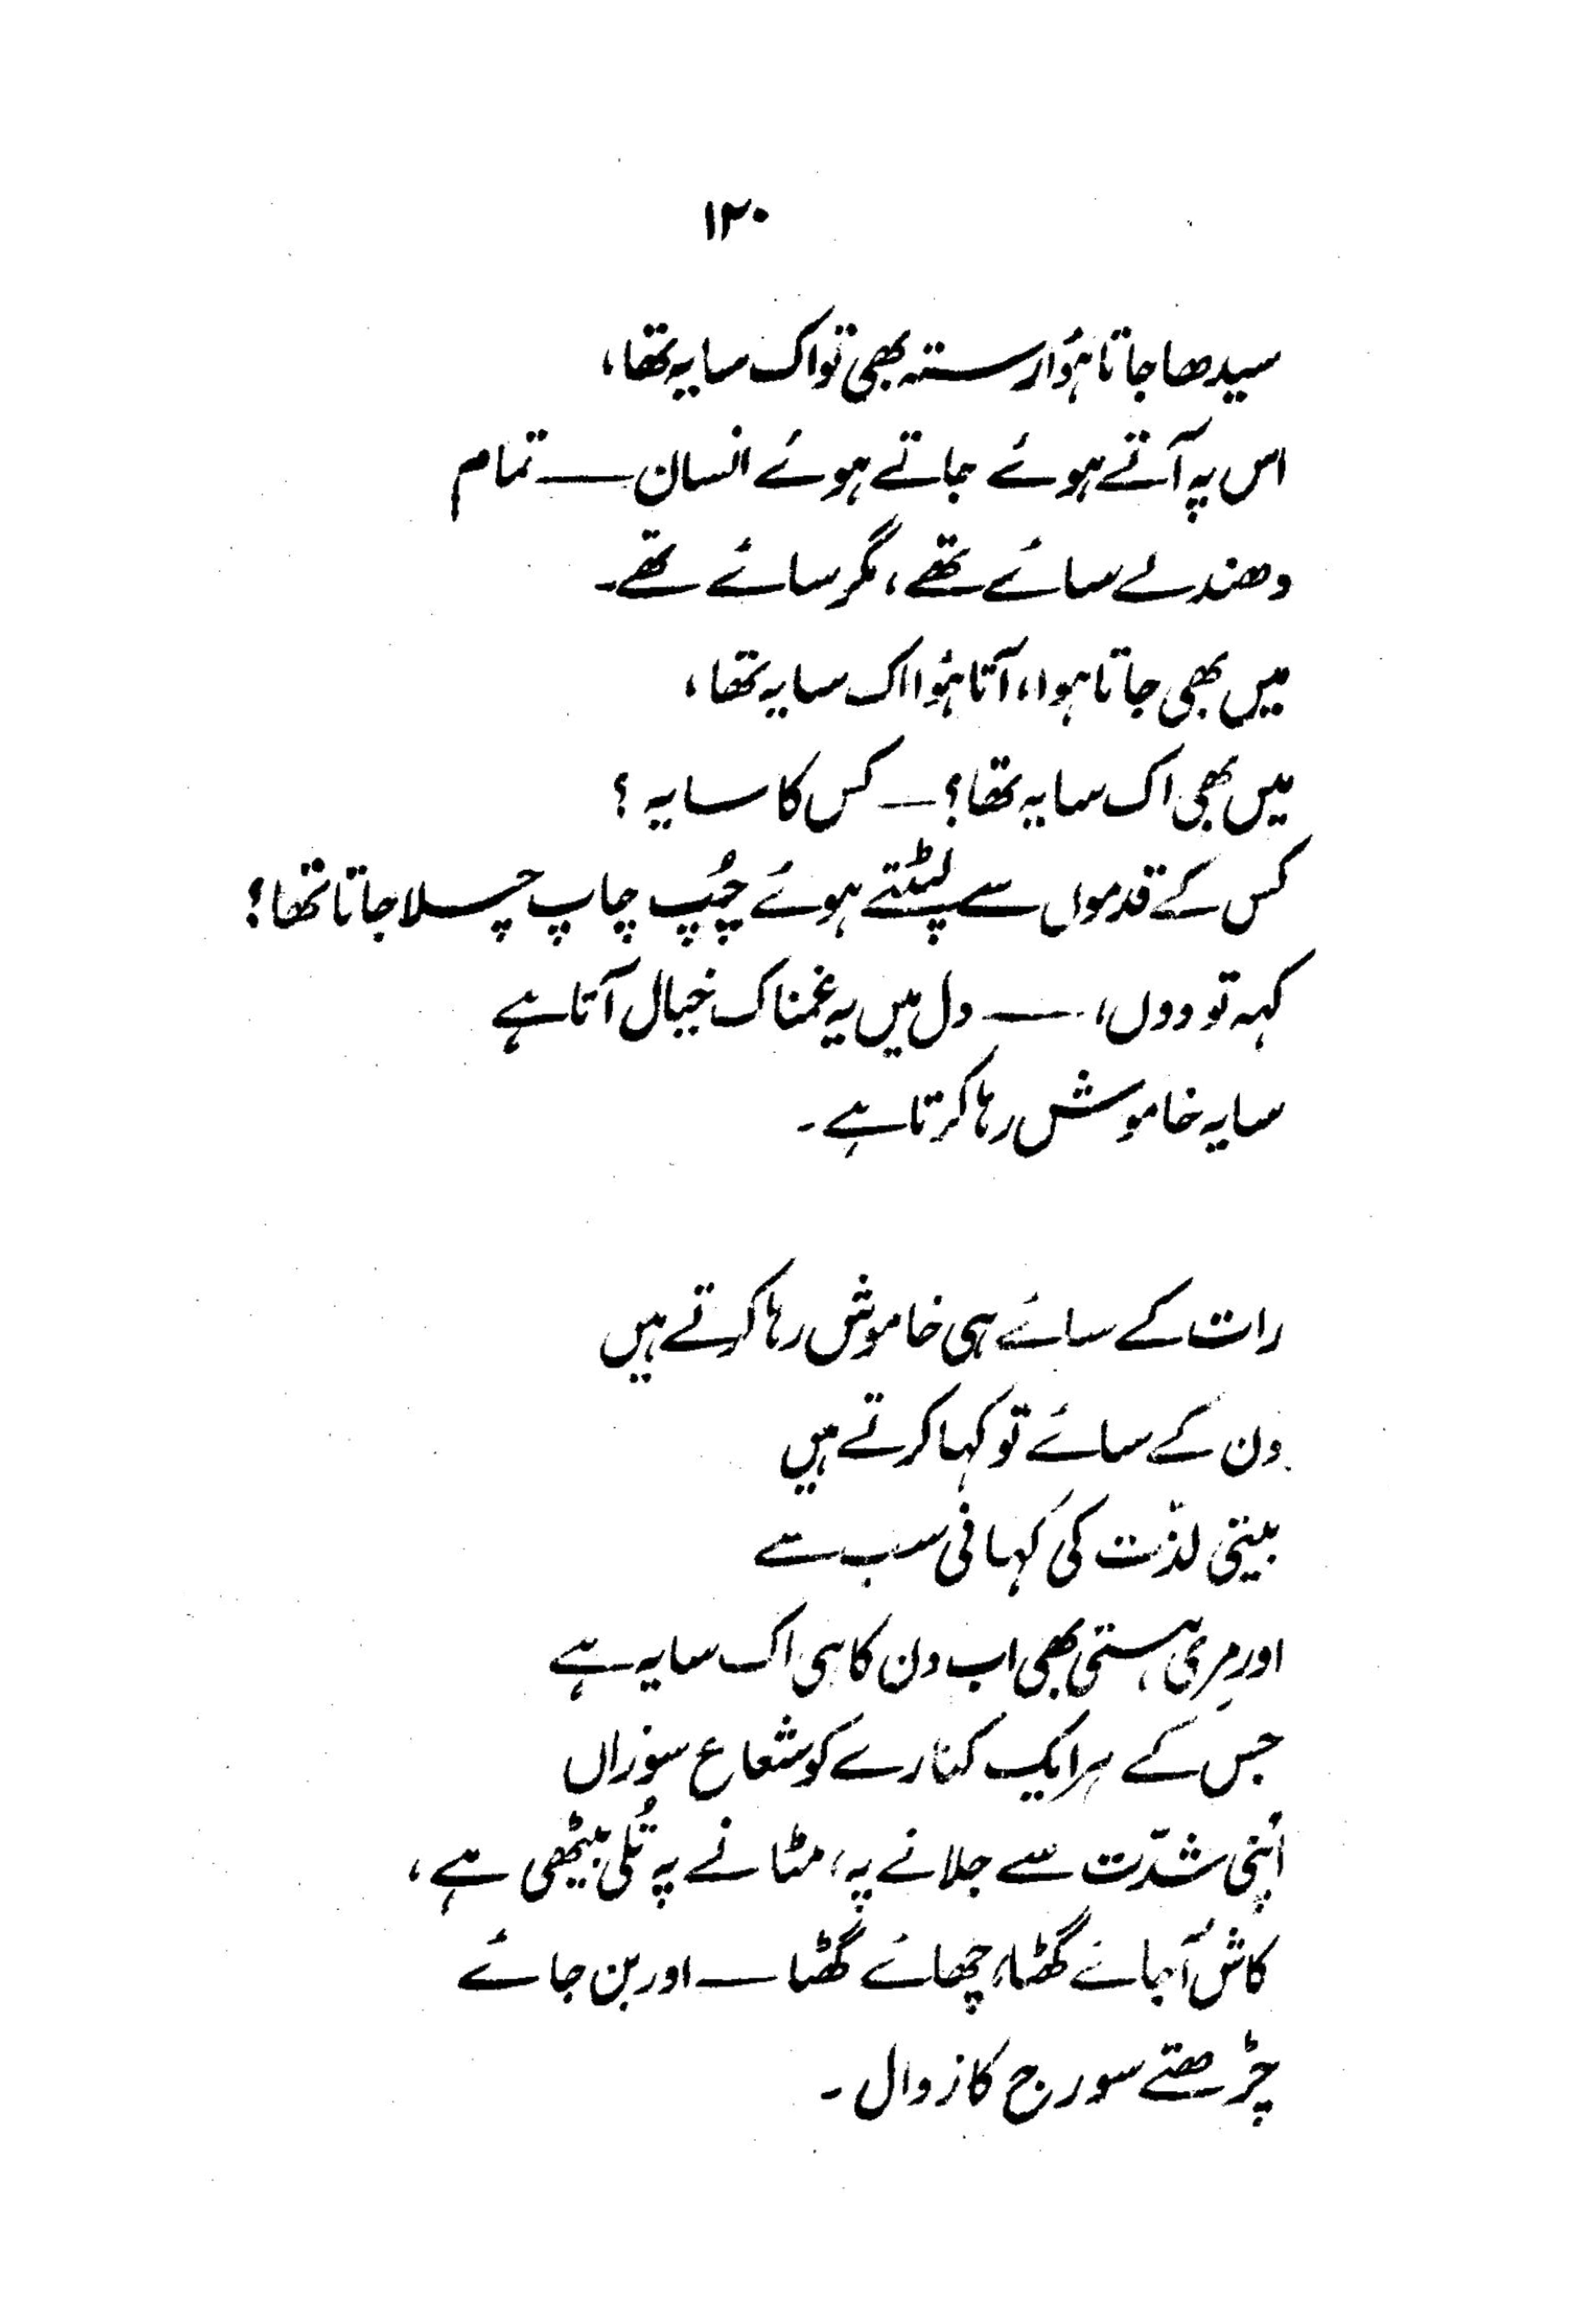 ۱۲۰
سیدھا جاتا ہؤا رستہ بھی تو اک سایہ تھا،
اس پہ آتے ہوئے جاتے ہوئے انسان ــــ تمام
دھندلے سائے تھے، مگر سائے تھے۔
میں بھی جاتا ہوا، آتا ہؤا اک سایہ تھا،
میں بھی اک سایہ تھا؟ ــــ کس کا سایہ؟
کس کے قدموں سے لپٹتے ہوئے چُپ چاپ چلا جاتا تھا؟
کہہ تو دوں، ــــ دل میں یہ غمناک خیال آتا ہے
سایہ خاموش رہا کرتا ہے۔
رات کے سائے ہی خاموش رہا کرتے ہیں
دن کے سائے تو کہا کرتے ہیں
بیتی لذّت کی کہانی سب سے
اور مِری ہستی بھی اب دن کا ہی اک سایہ ہے
جس کے ہر ایک کنارے کو شعاع سوزاں
اپنی شدّت سے جلانے پہ، مٹانے پہ تُلی بیٹھی ہے،
کاش آ جائے گھٹا، چھائے گھٹا ــــ اور بن جائے
چڑھتے سورج کا زوال۔